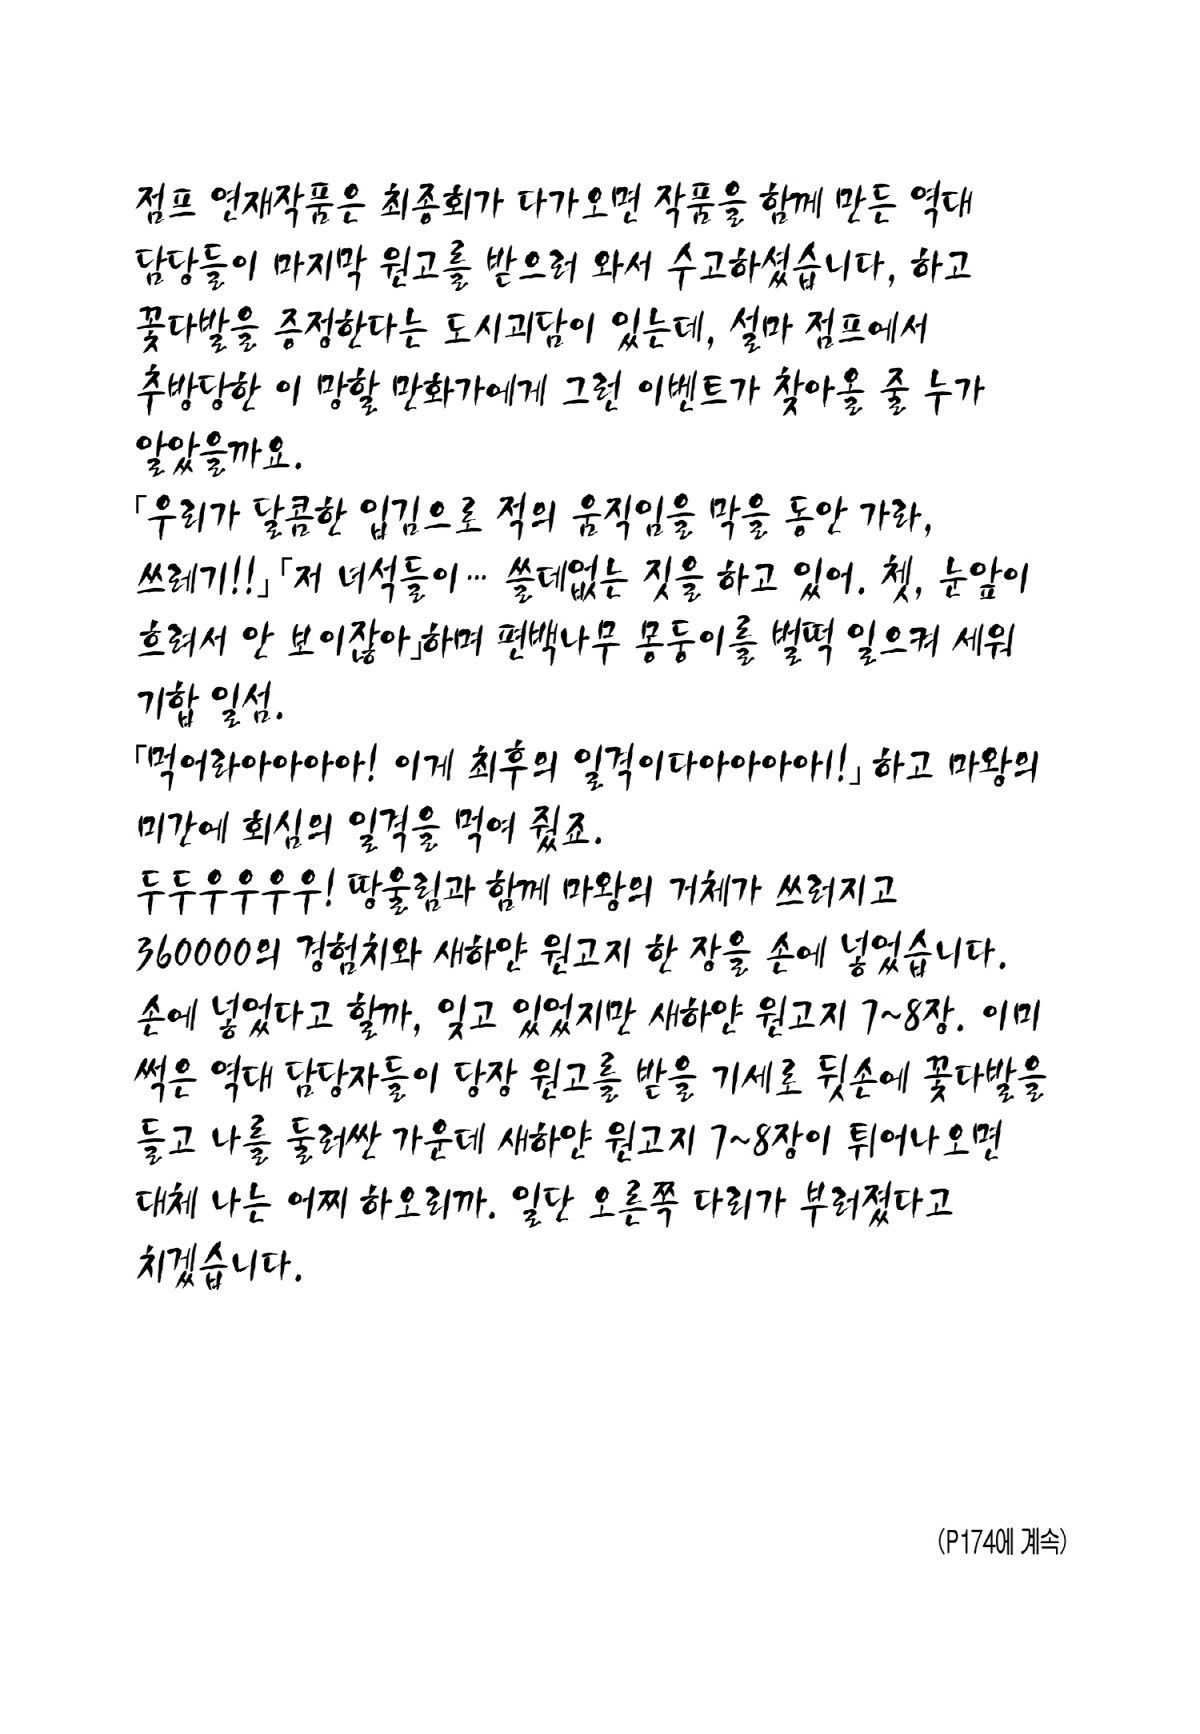 점프 연재작품은 최종회가 다가오면 작품을 함께 만든 역대
담당들이 마지막 원고를 받으러 와서 수고하셨습니다, 하고
꽃다발을 증정한다는 도시괴담이 있는데, 설마 점프에서
추방당한 이 망할 만화가에게 그런 이벤트가 찾아올 줄 누가
알았을까요.
「우리가 달콤한 입김으로 적의 움직임을 막을 동안 가라,
쓰레기!!」「저 녀석들이… 쓸데없는 짓을 하고 있어. 쳇, 눈앞이
흐려서 안 보이잖아」하며 편백나무 몽둥이를 벌떡 일으켜 세워
기합 일섬.
「먹어라아아아아! 이게 최후의 일격이다아아아아아!!」 하고 마왕의
미간에 회심의 일격을 먹여 줬죠.
두두우우우우! 땅울림과 함께 마왕의 거체가 쓰러지고
360000의 경험치와 새하얀 원고지 한 장을 손에 넣었습니다.
손에 넣었다고 할까, 잊고 있었지만 새하얀 원고지 7~8장. 이미
썩은 역대 담당자들이 당장 원고를 받을 기세로 뒷손에 꽃다발을
들고 나를 둘러싼 가운데 새하얀 원고지 7~8장이 튀어나오면
대체 나는 어찌 하오리까. 일단 오른쪽 다리가 부러졌다고
치겠습니다.
(P174에 계속)